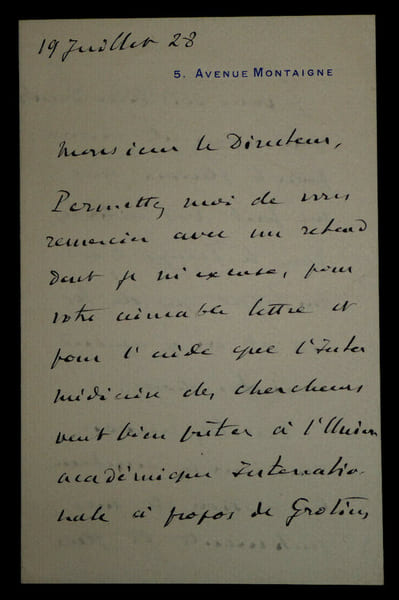 19 Juillet 28
5. AVENUE MONTAIGNE
Monsieur le Directeur,
Permettez moi de vous
remercier avec un retard
dont je m'excuse, pour
votre aimable lettre et
pour l'aide que l'Inter
médiaire des chercheurs
veut bien prêter à l'Union
académique Internatio-
nale à propos de Grotius